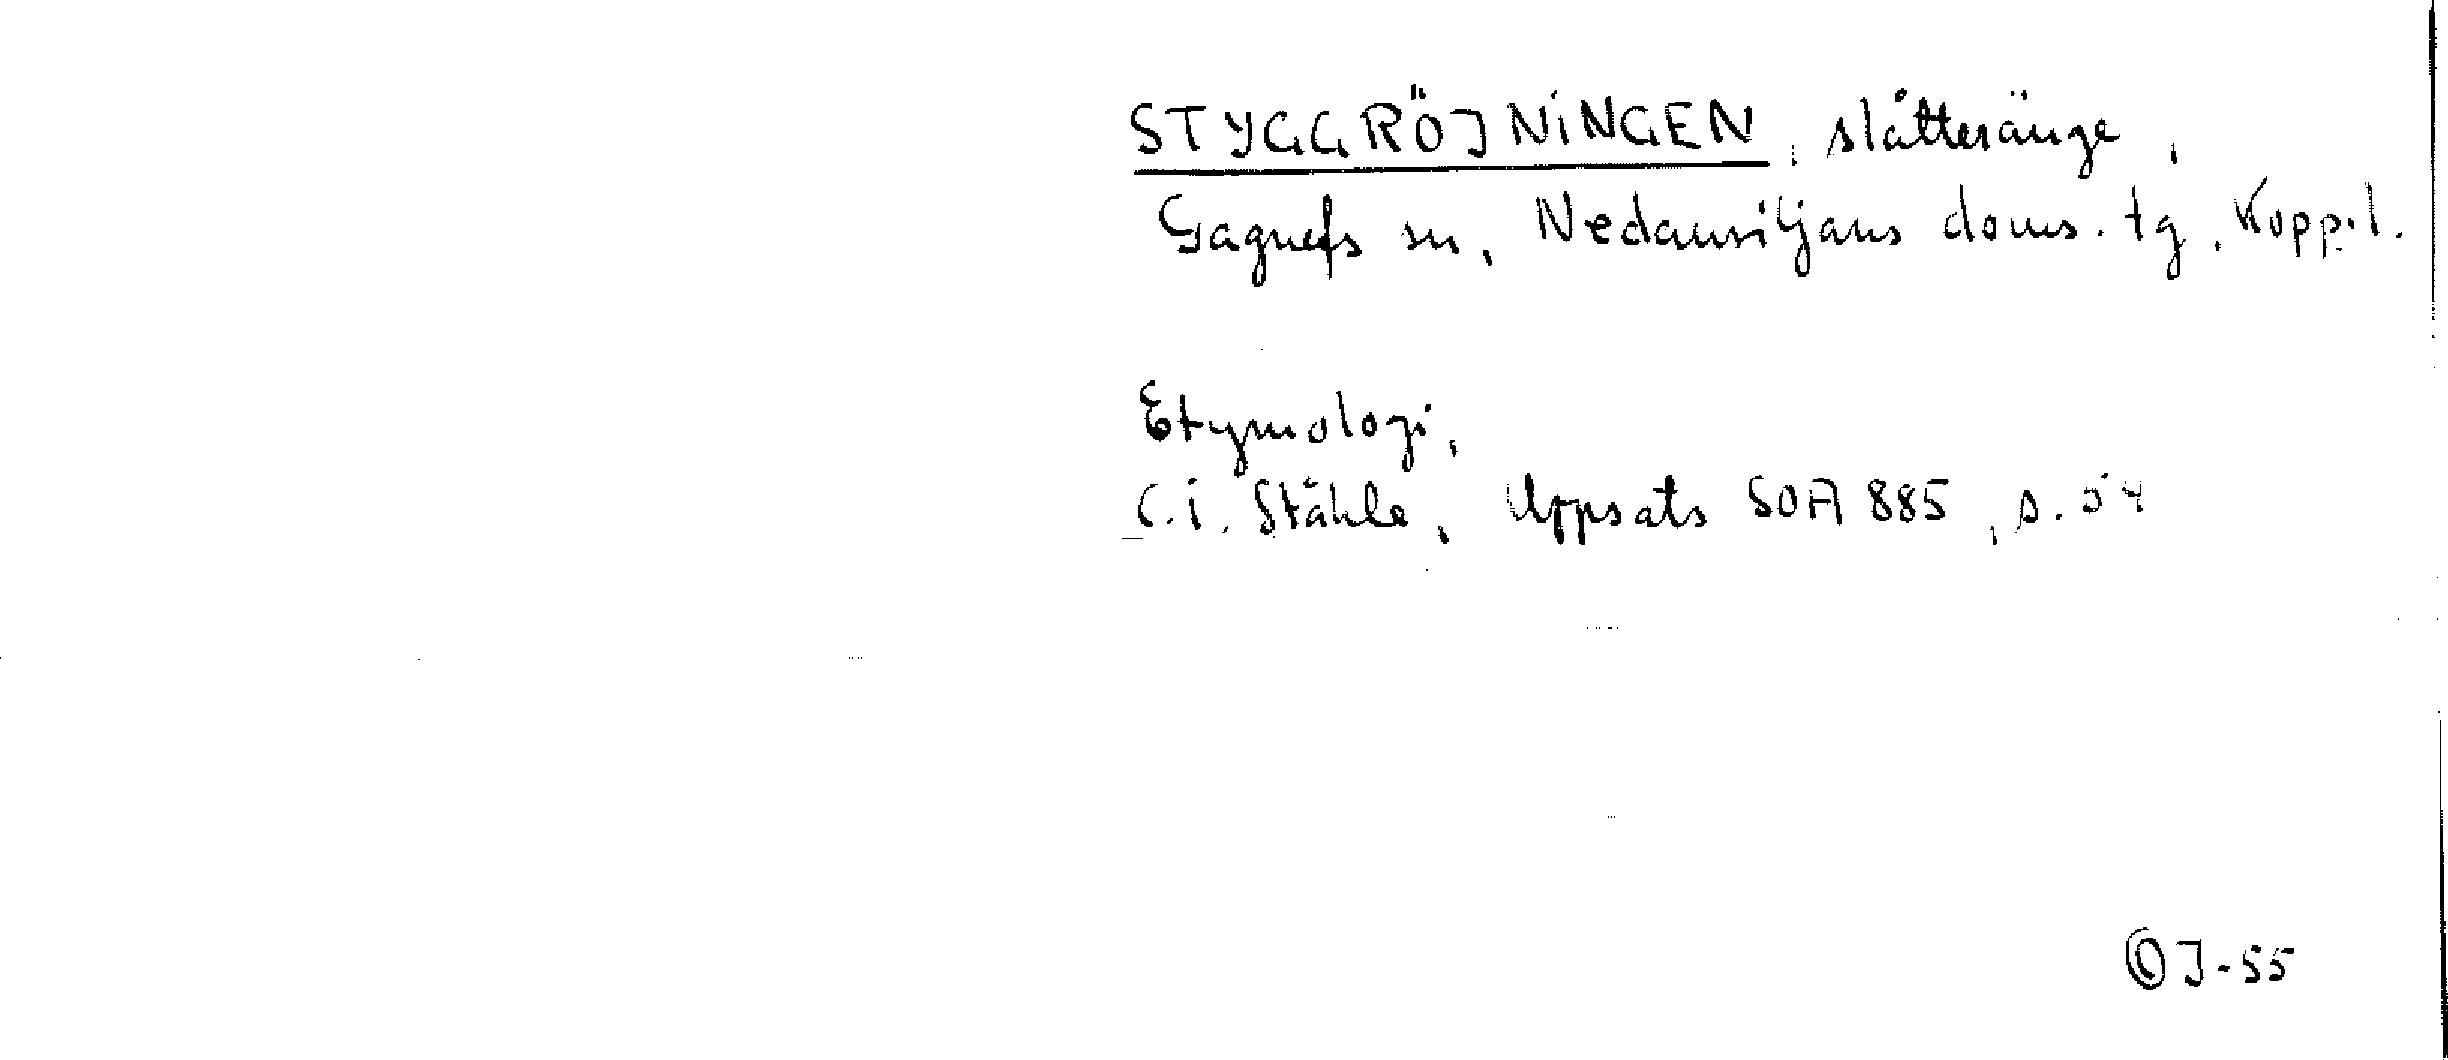 STYGGRÖJNINGEN, slåtteränge,
Gagnefs sn, Nedansiljans doms. tg, Kopp. l.
Etymologi,
C.I. Ståhle, Uppsats SOA 885, s. 54
©J-55